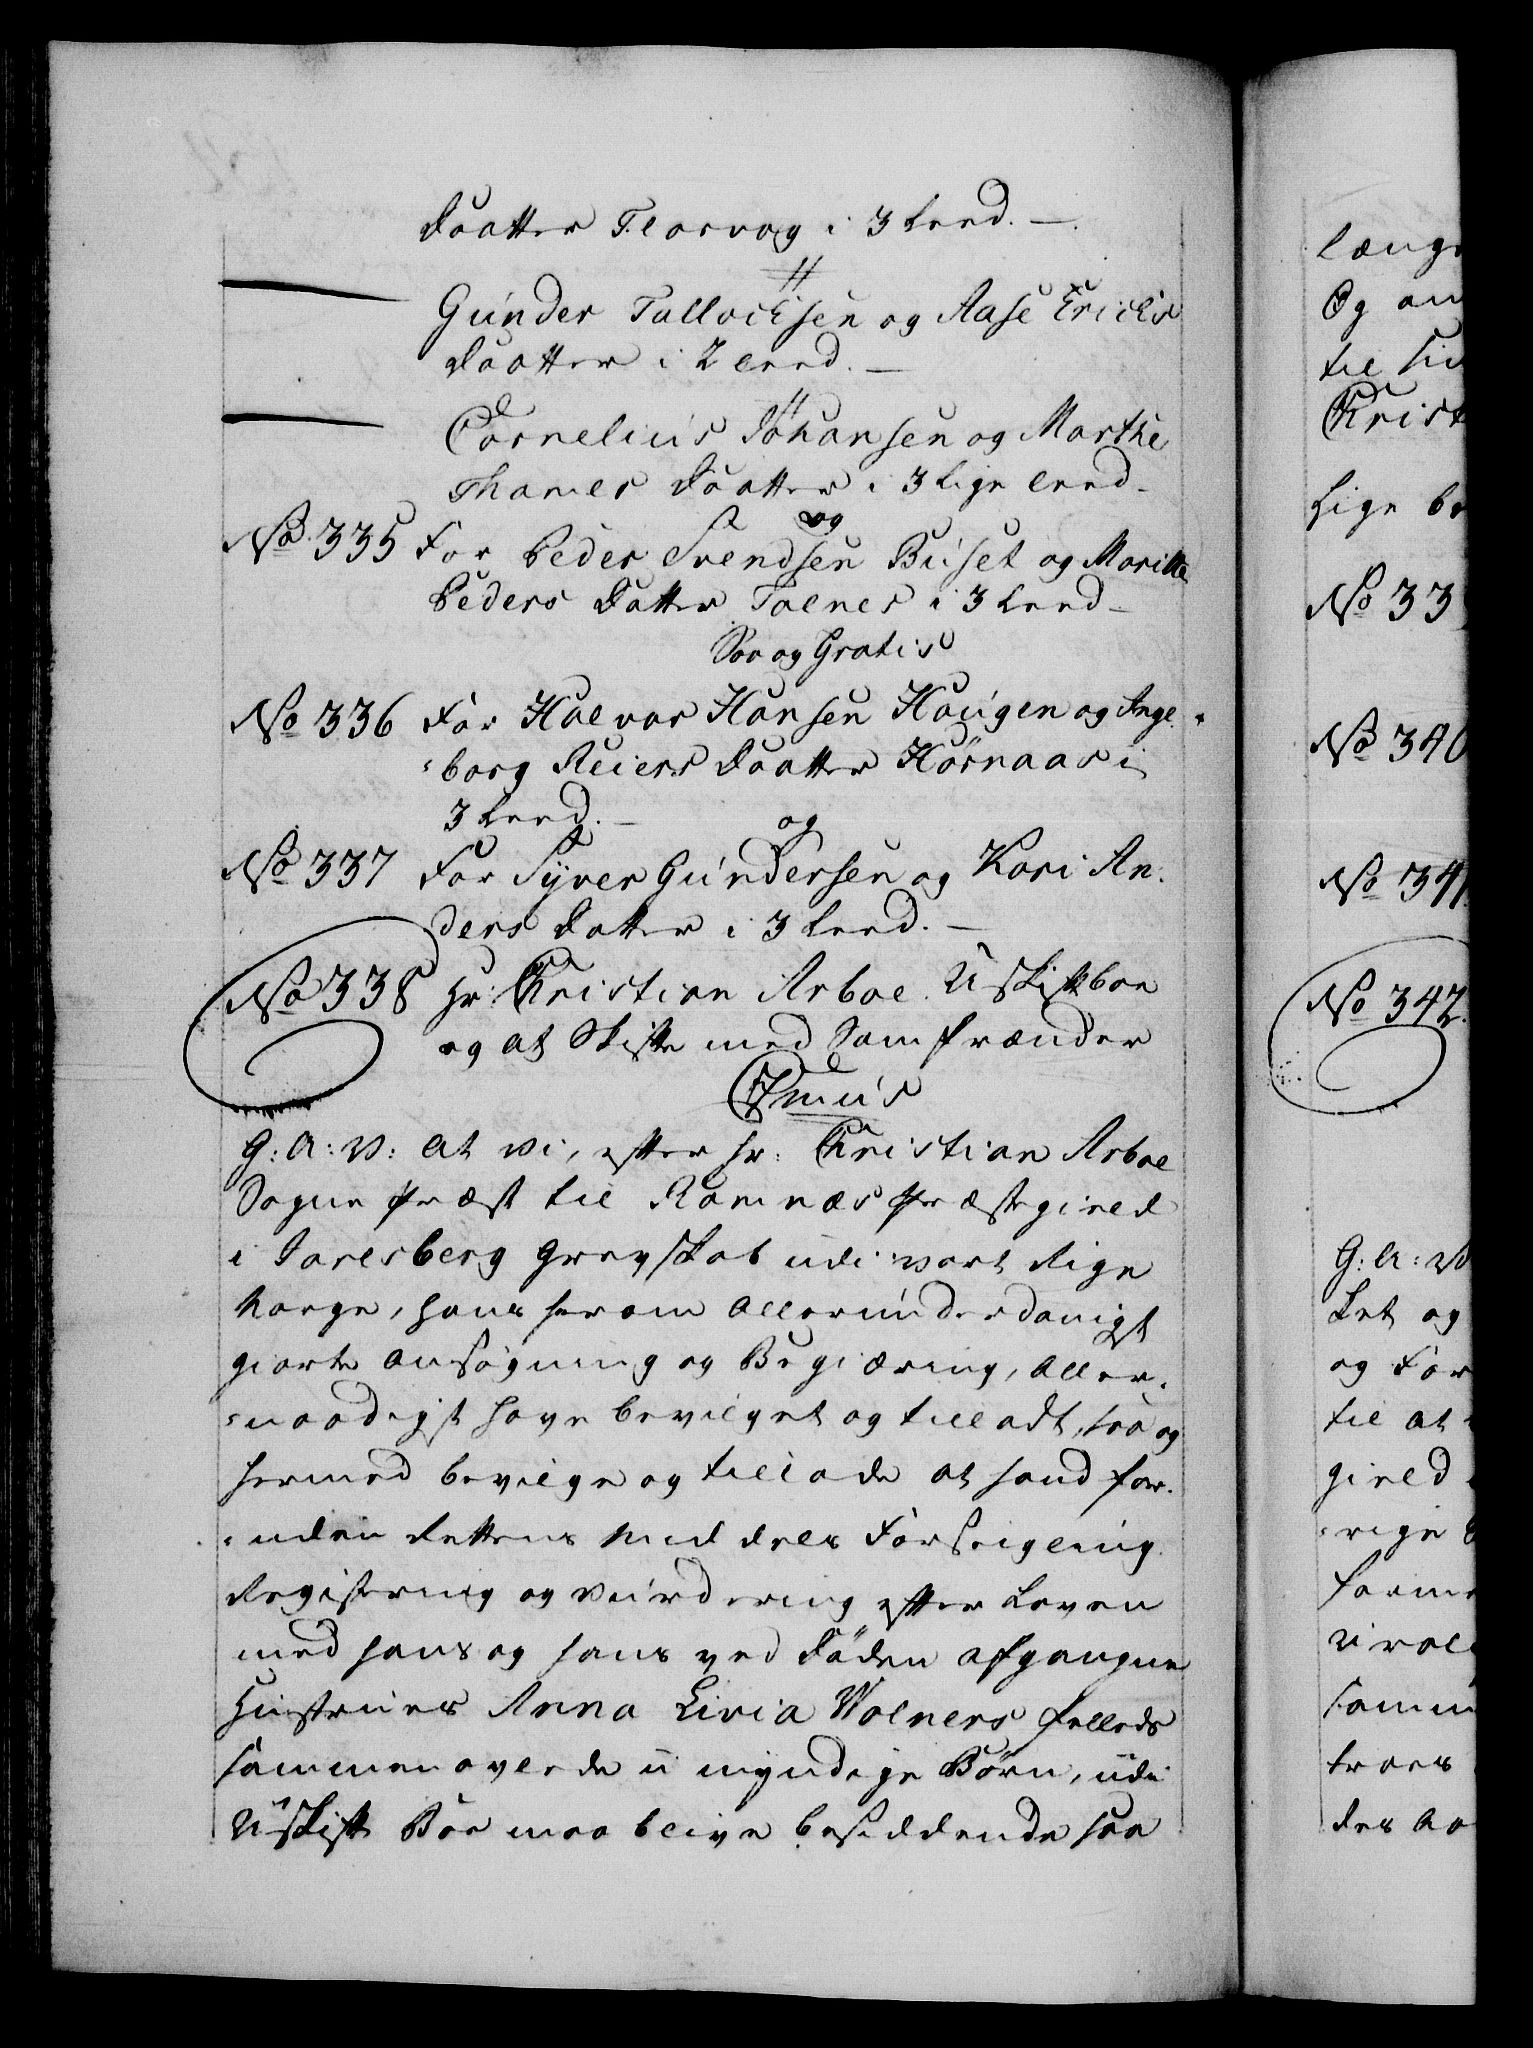 Daatter Florvog i 3 Leed. —
"
Gunder Tallochsen og Aase Erichs
Daatter i 2 Leed. —
"
Cornelius Johansen og Marthe
Thomes Daatter i 3 Lige Leed.
og
No 335 For Peder Svendsen Buset og Maritte
Peders Datter Tolnes i 3 Leed –
Saa og Gratis
No 336 For Halvor Hansen Haugen og Inge-
borg Reiers Daatter Hörnaas i
3 Leed. —
og
No 337 For Syver Gundersen og Kari An-
ders Datter i 3 Leed. —
No 338 Hr: Christian Arboe Uskiftboe
og at Skifte med Samfrænder
C7mus
G: A: V: at vi, efter hr: Christian Arboe
Sogne præst til Ramnæs Præstegield
i Jarlsberg Grevskab udi vort Rige
Norge, hans herom allerunderdanigst
giorte Ansøgning og Begiæring, Aller-
naadigst have bevilget og tilladt, saa og
hermed bevilge og tillade at hand for-
uden Rettens Middels Forseigling
Registering og Vurdering efter Loven
med hans og hans ved Döden afgangne
Hustrues Anna Livia Wolners fælleds
sammenavlede umyndige Børn, udi
Uskift Boe maa blive besiddende saa
længe
Og an
til
Krist
Lige be
No 33
No 340
No 341
No 342.
G: A: V
Let og
og For
til at
gield
rige
for
sam
des